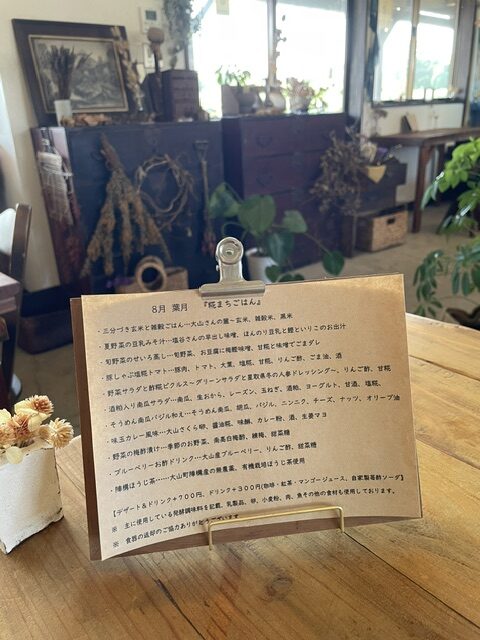 8月 葉月 『糀まちごはん』
・三分づき玄米と雑穀ごはん…大山さんの麗～玄米、雑穀米、黒米
・夏野菜の豆乳みそ汁…塩谷さんの早出し味噌、ほんのり豆乳と鰹といりこのお出汁
・旬野菜のせいろ蒸し…旬野菜、お豆腐に梅鰹味噌、甘糀と味噌でごまダレ
・豚しゃぶ塩糀トマト…豚肉、トマト、大葉、塩糀、甘糀、りんご酢、ごま油、酒
・野菜サラダと酢糀ピクルス～グリーンサラダと夏秋県冬の人参ドレッシング～、りんご酢、甘糀
・酒粕入り南瓜サラダ…南瓜、生おから、レーズン、玉ねぎ、酒粕、ヨーグルト、甘酒、塩糀、
・そうめん南瓜バジル和え…そうめん南瓜、胡瓜、バジル、ニンニク、チーズ、ナッツ、オリーブ油
・味玉カレー風味…大山さくら卵、醤油糀、味醂、カレー粉、酒、生姜
・野菜の梅酢漬け…季節のお野菜、南高白梅酢、甜菜糖
・ブルーベリーお酢ドリンク…大山産ブルーベリー、りんご酢、甜菜糖
・陣構ほうじ茶……大山町陣構産の無農薬、有機栽培ほうじ茶使用
【デザート&ドリンク+700円、ドリンク+300円(珈琲・紅茶・マンゴージュース、自家製苺酢ソーダ】
※ 主に使用している発酵調味料を記載、乳製品、卵、小麦粉、肉、魚その他の食材も使用しております。
※ 食器の返却のご協力ありがとうございます